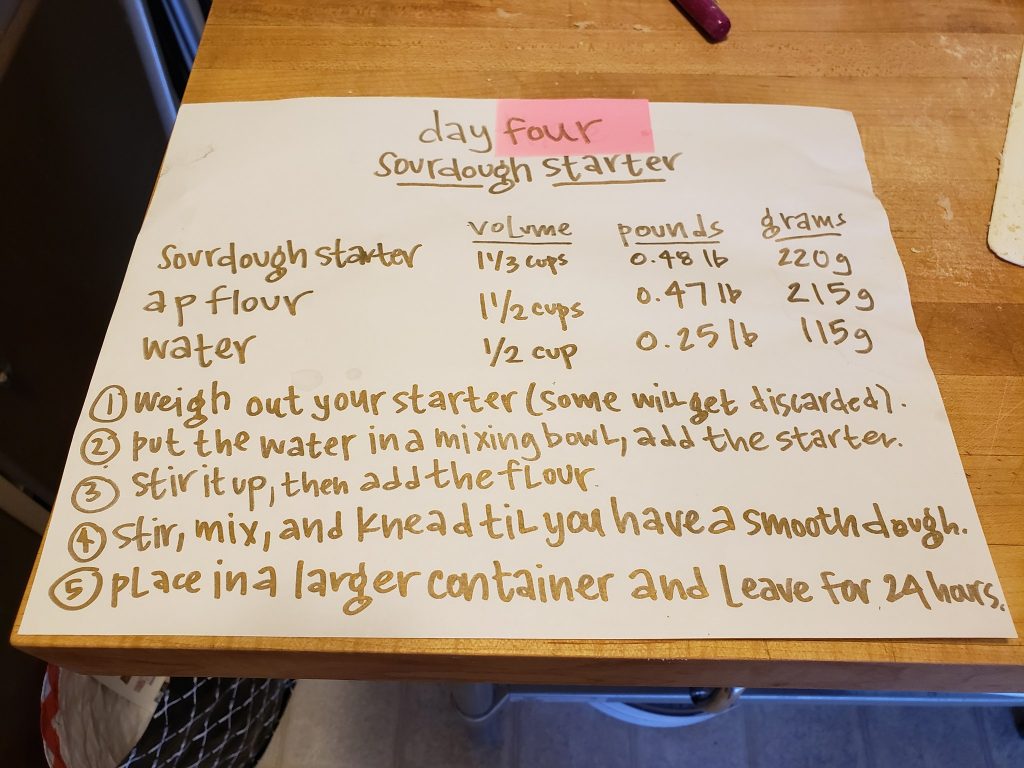 day four
sourdough starter
volume pounds grams
sourdough starter 1 1/3 cups 0.48 lb 220g
ap flour 1 1/2 cups 0.47 lb 215g
water 1/2 cup 0.25 lb 115g
① weigh out your starter (some will get discarded).
② put the water in a mixing bowl, add the starter.
③ stir it up, then add the flour.
④ stir, mix, and knead til you have a smooth dough.
⑤ place in a larger container and leave for 24 hours.